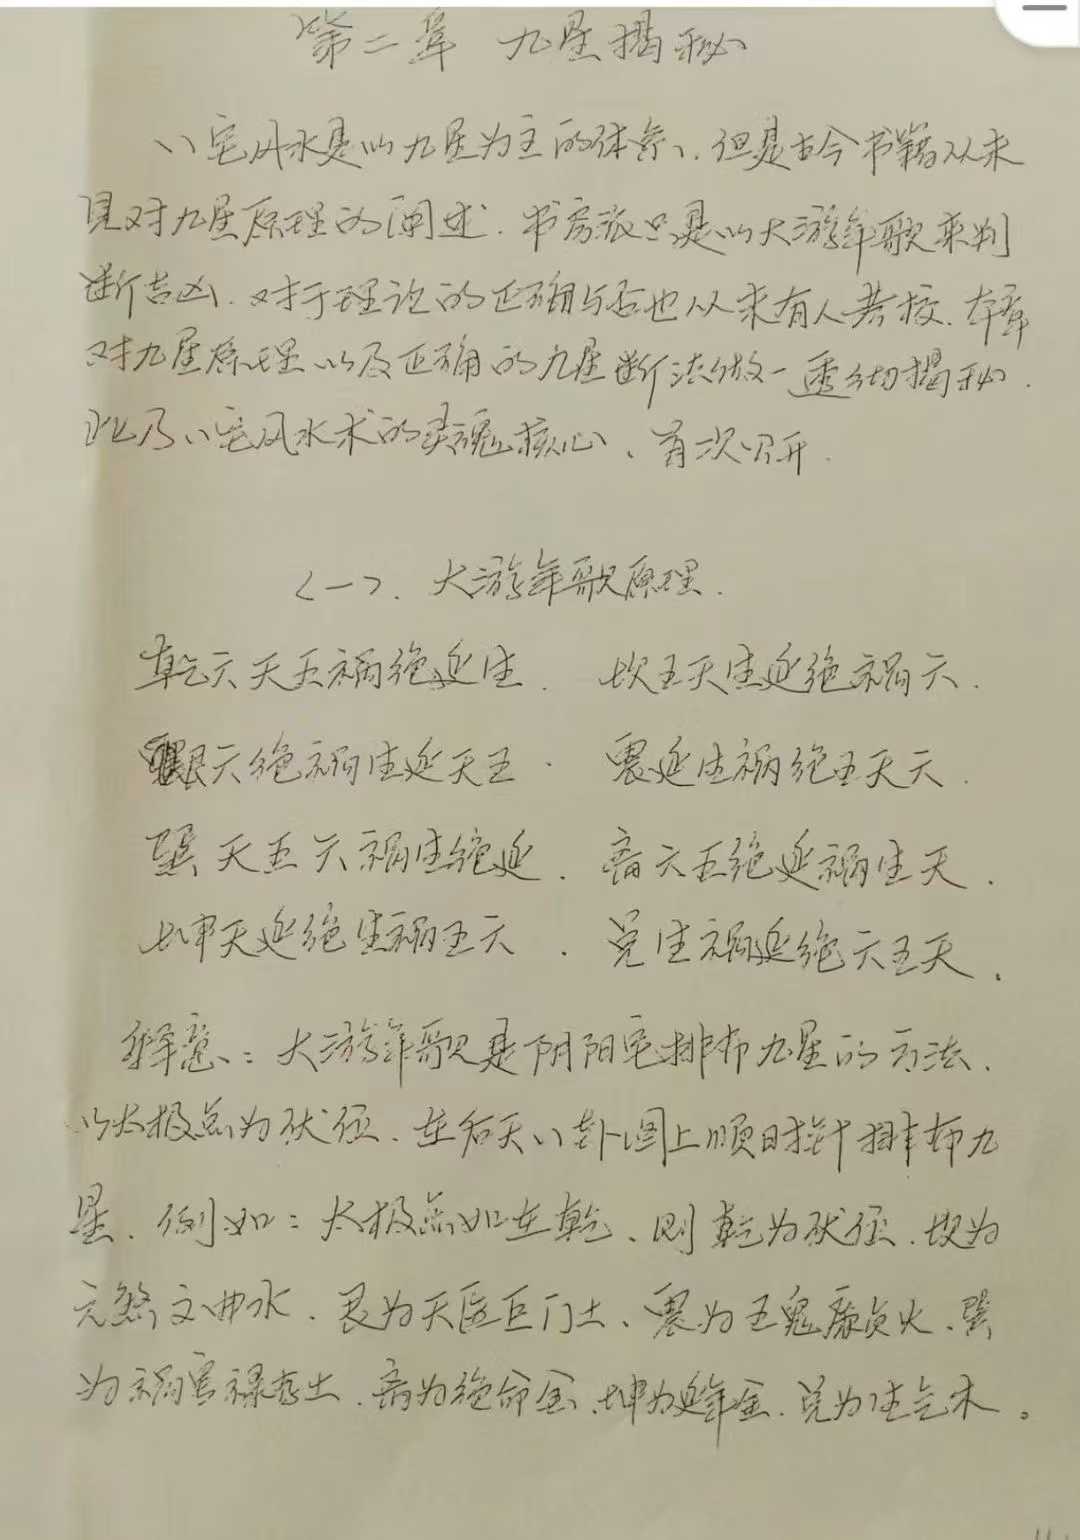 第二章 九星揭秘
八宅风水是以九星为主的体系、但是古今书籍从未
见对九星原理的阐述、书房派只是以大游年歌来判
断吉凶、对于理论的正确与否也从未有人考校、本章
对九星原理以及正确的九星断法做一透彻揭秘.
此乃八宅风水术的灵魂核心、首次公开.
<一>、大游年歌原理.
乾六天五祸绝延生. 坎五天生延绝祸六.
艮六绝祸生延天五. 震延生祸绝五天六.
巽天五六祸生绝延. 离六五绝延祸生天.
坤天延绝生祸五六. 兑生祸延绝六五天.
释意:大游年歌是阴阳宅排布九星的方法、
以太极点为伏位、在后天八卦图上顺时针排布九
星、例如:太极点如在乾、则乾为伏位、坎为
六煞文曲水、艮为天医巨门土、震为五鬼廉贞火、巽
为祸害禄存土、离为绝命金、坤为延年金、兑为生气木。